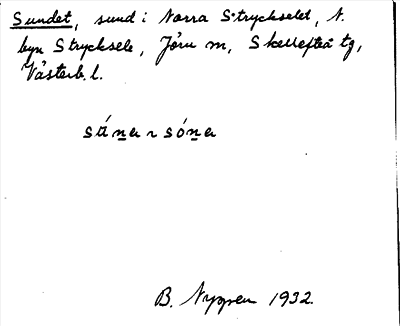 Sundet, sund i Norra Stryckselet, N.
byn Strycksele, Jörn m, Skellefteå tg,
Västerb. l.
B. Nygren 1932.